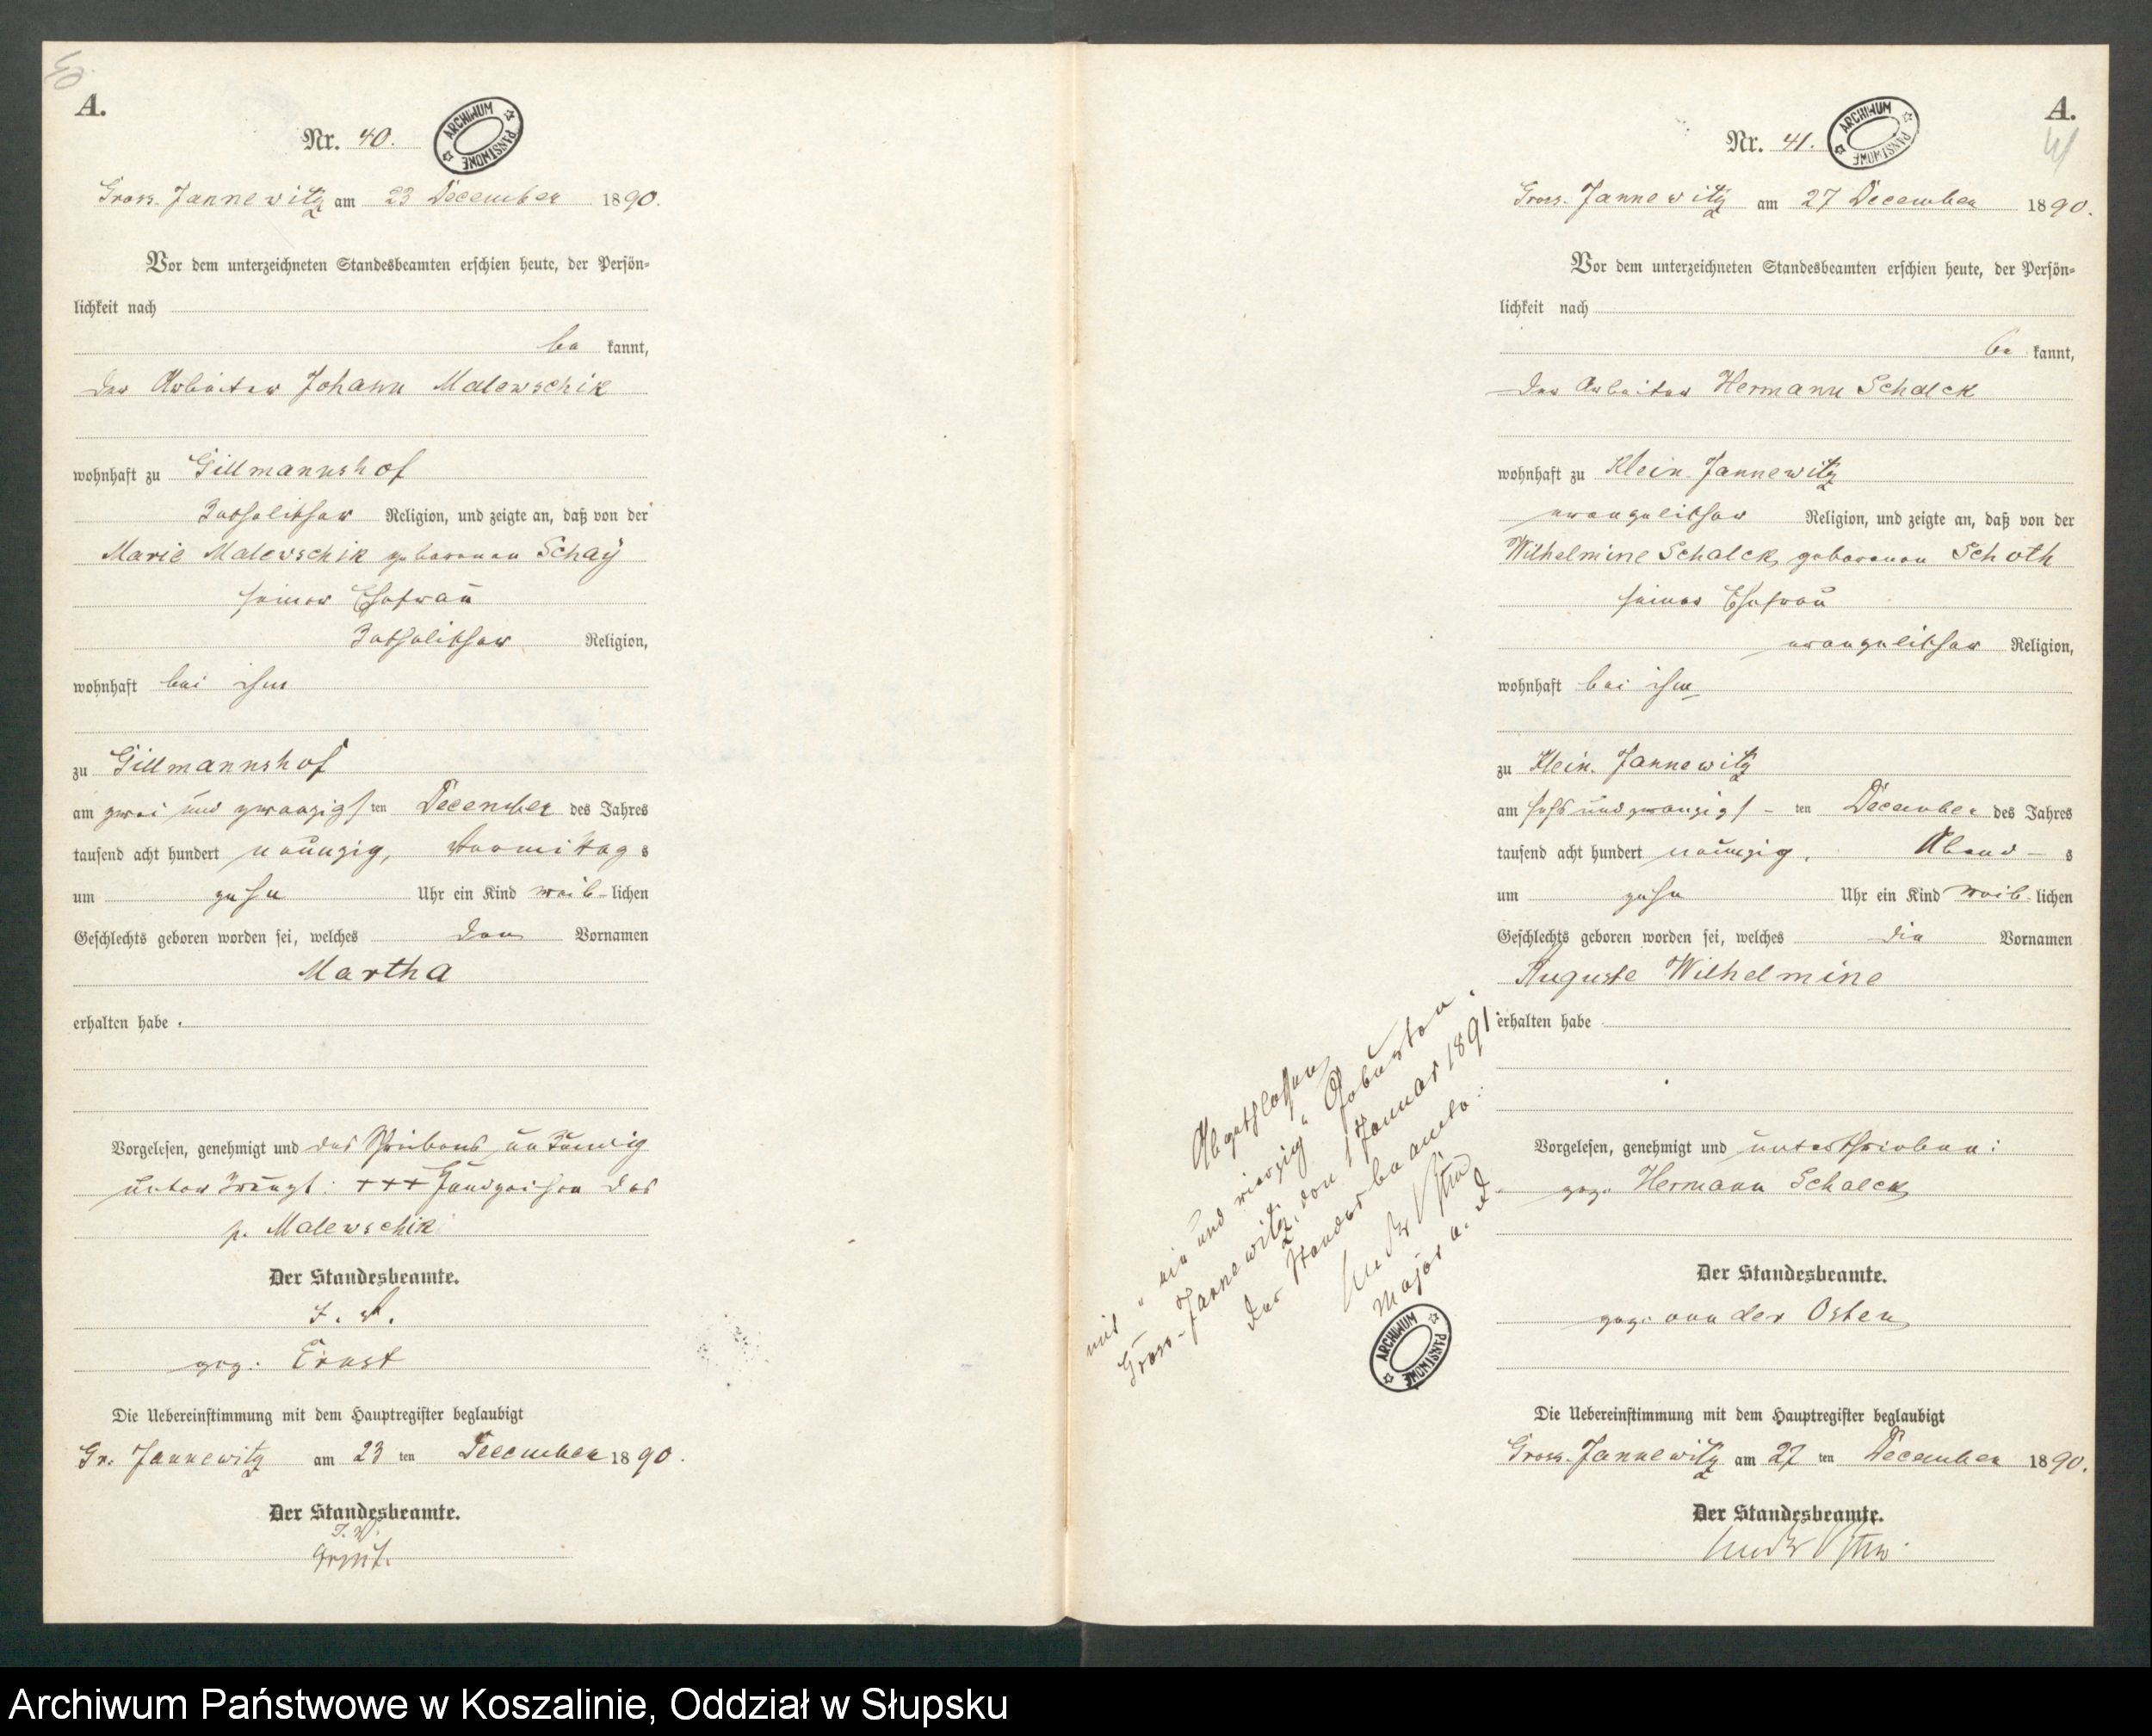 A.
Nr. 40.
ARCHIWUM PAŃSTWOWE
Gross. Jannewitz am 23 December 1890.
Vor dem unterzeichneten Standesbeamten erschien heute, der Persön=
lichkeit nach
be kannt,
der Arbeiter Johann Malewschik
wohnhaft zu Gillmannshof
katholischer Religion, und zeigte an, daß von der
Marie Malewschik geborenen Schay
seiner Ehefrau
katholischer Religion,
wohnhaft bei ihm
zu Gillmannshof
am zwei und zwanzigsten December des Jahres
tausend acht hundert neunzig, Vormittags
um zehn Uhr ein Kind weib-lichen
Geschlechts geboren worden sei, welches den Vornamen
Martha
erhalten habe.
Vorgelesen, genehmigt und des Schreibens unkundig
unterkreuzt: +++ Handzeichen des
p. Malewschik
Der Standesbeamte.
I. V.
gez. Ernst
Die Uebereinstimmung mit dem Hauptregister beglaubigt
Gr. Jannewitz am 23 ten December 1890.
Der Standesbeamte.
I. V.
Ernst.
A.
41
Nr. 41.
ARCHIWUM PAŃSTWOWE
Gross. Jannewitz am 27 December 1890.
Vor dem unterzeichneten Standesbeamten erschien heute, der Persön=
lichkeit nach
be kannt,
der Arbeiter Hermann Schalck
wohnhaft zu Klein. Jannewitz
evangelischer Religion, und zeigte an, daß von der
Wilhelmine Schalck, geborenen Schoth
seiner Ehefrau
evangelischer Religion,
wohnhaft bei ihm
zu Klein. Jannewitz
am sechsundzwanzigst-ten December des Jahres
tausend acht hundert neunzig, Abend-s
um zehn Uhr ein Kind weib-lichen
Geschlechts geboren worden sei, welches die Vornamen
Auguste Wilhelmine
erhalten habe
Vorgelesen, genehmigt und unterschrieben:
gez. Hermann Schalck
Der Standesbeamte.
gez. von der Osten
Die Uebereinstimmung mit dem Hauptregister beglaubigt
Gross. Jannewitz am 27 ten December 1890.
Der Standesbeamte.
von der Osten
Abgeschlossen
mit "ein und vierzig" Geburten.
Gross-Jannewitz, den 1 Januar 1891
Der Standesbeamte:
von der Osten
Major a. D.
ARCHIWUM PAŃSTWOWE
Archiwum Państwowe w Koszalinie, Oddział w Słupsku